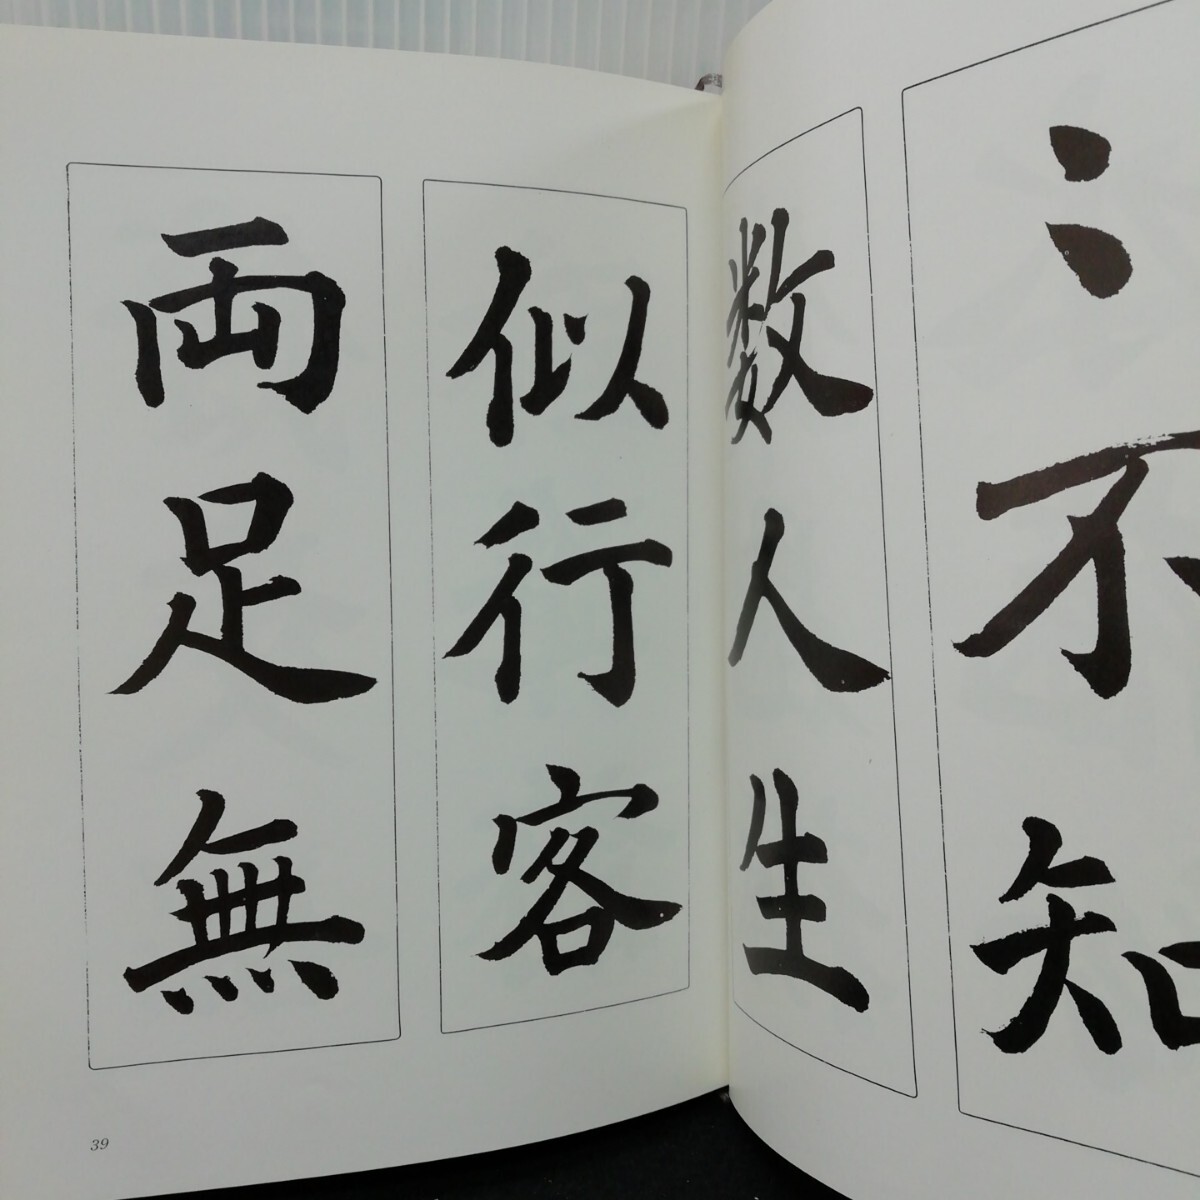 不知
数人生
似行客
両足無
39